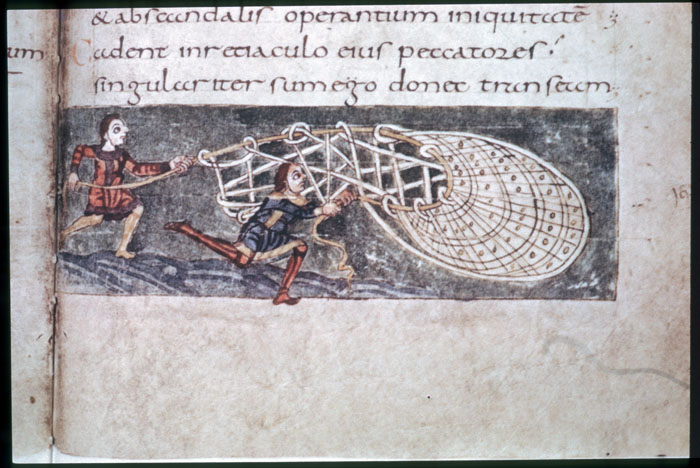 & abscandalis operantium iniquitatē
um
Cadent inretiaculo eius peccatores
singulariter sum ego donec transeam
18